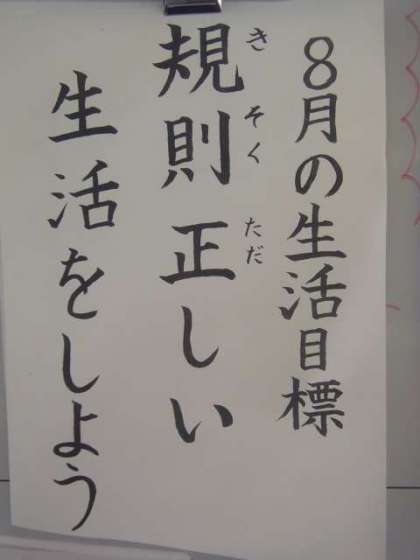 8月の生活目標
規則正しい
きそく ただ
生活をしよう